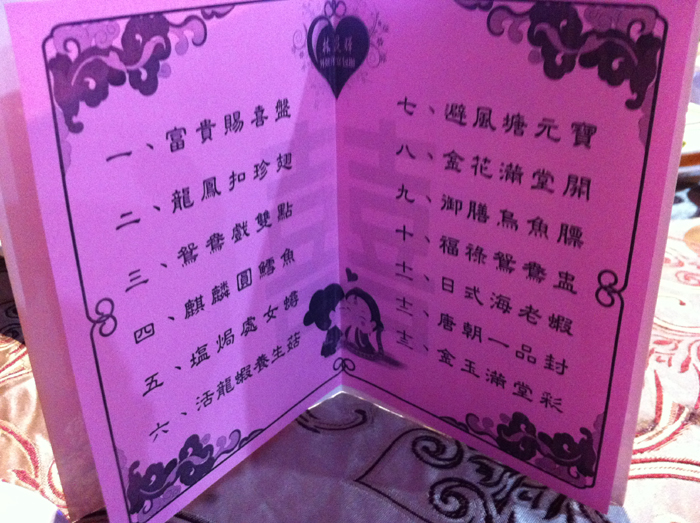 一、富貴賜喜盤
二、龍鳳扣珍翅
三、鴛鴦戲雙點
四、麒麟圓鱈魚
五、塩焗處女蟳
六、活龍蝦養生菇
七、避風塘元寶
八、金花滿堂開
九、御膳烏魚膘
十、福祿鴛鴦盅
十一、日式海老蝦
十二、唐朝一品封
十三、金玉滿堂彩
囍